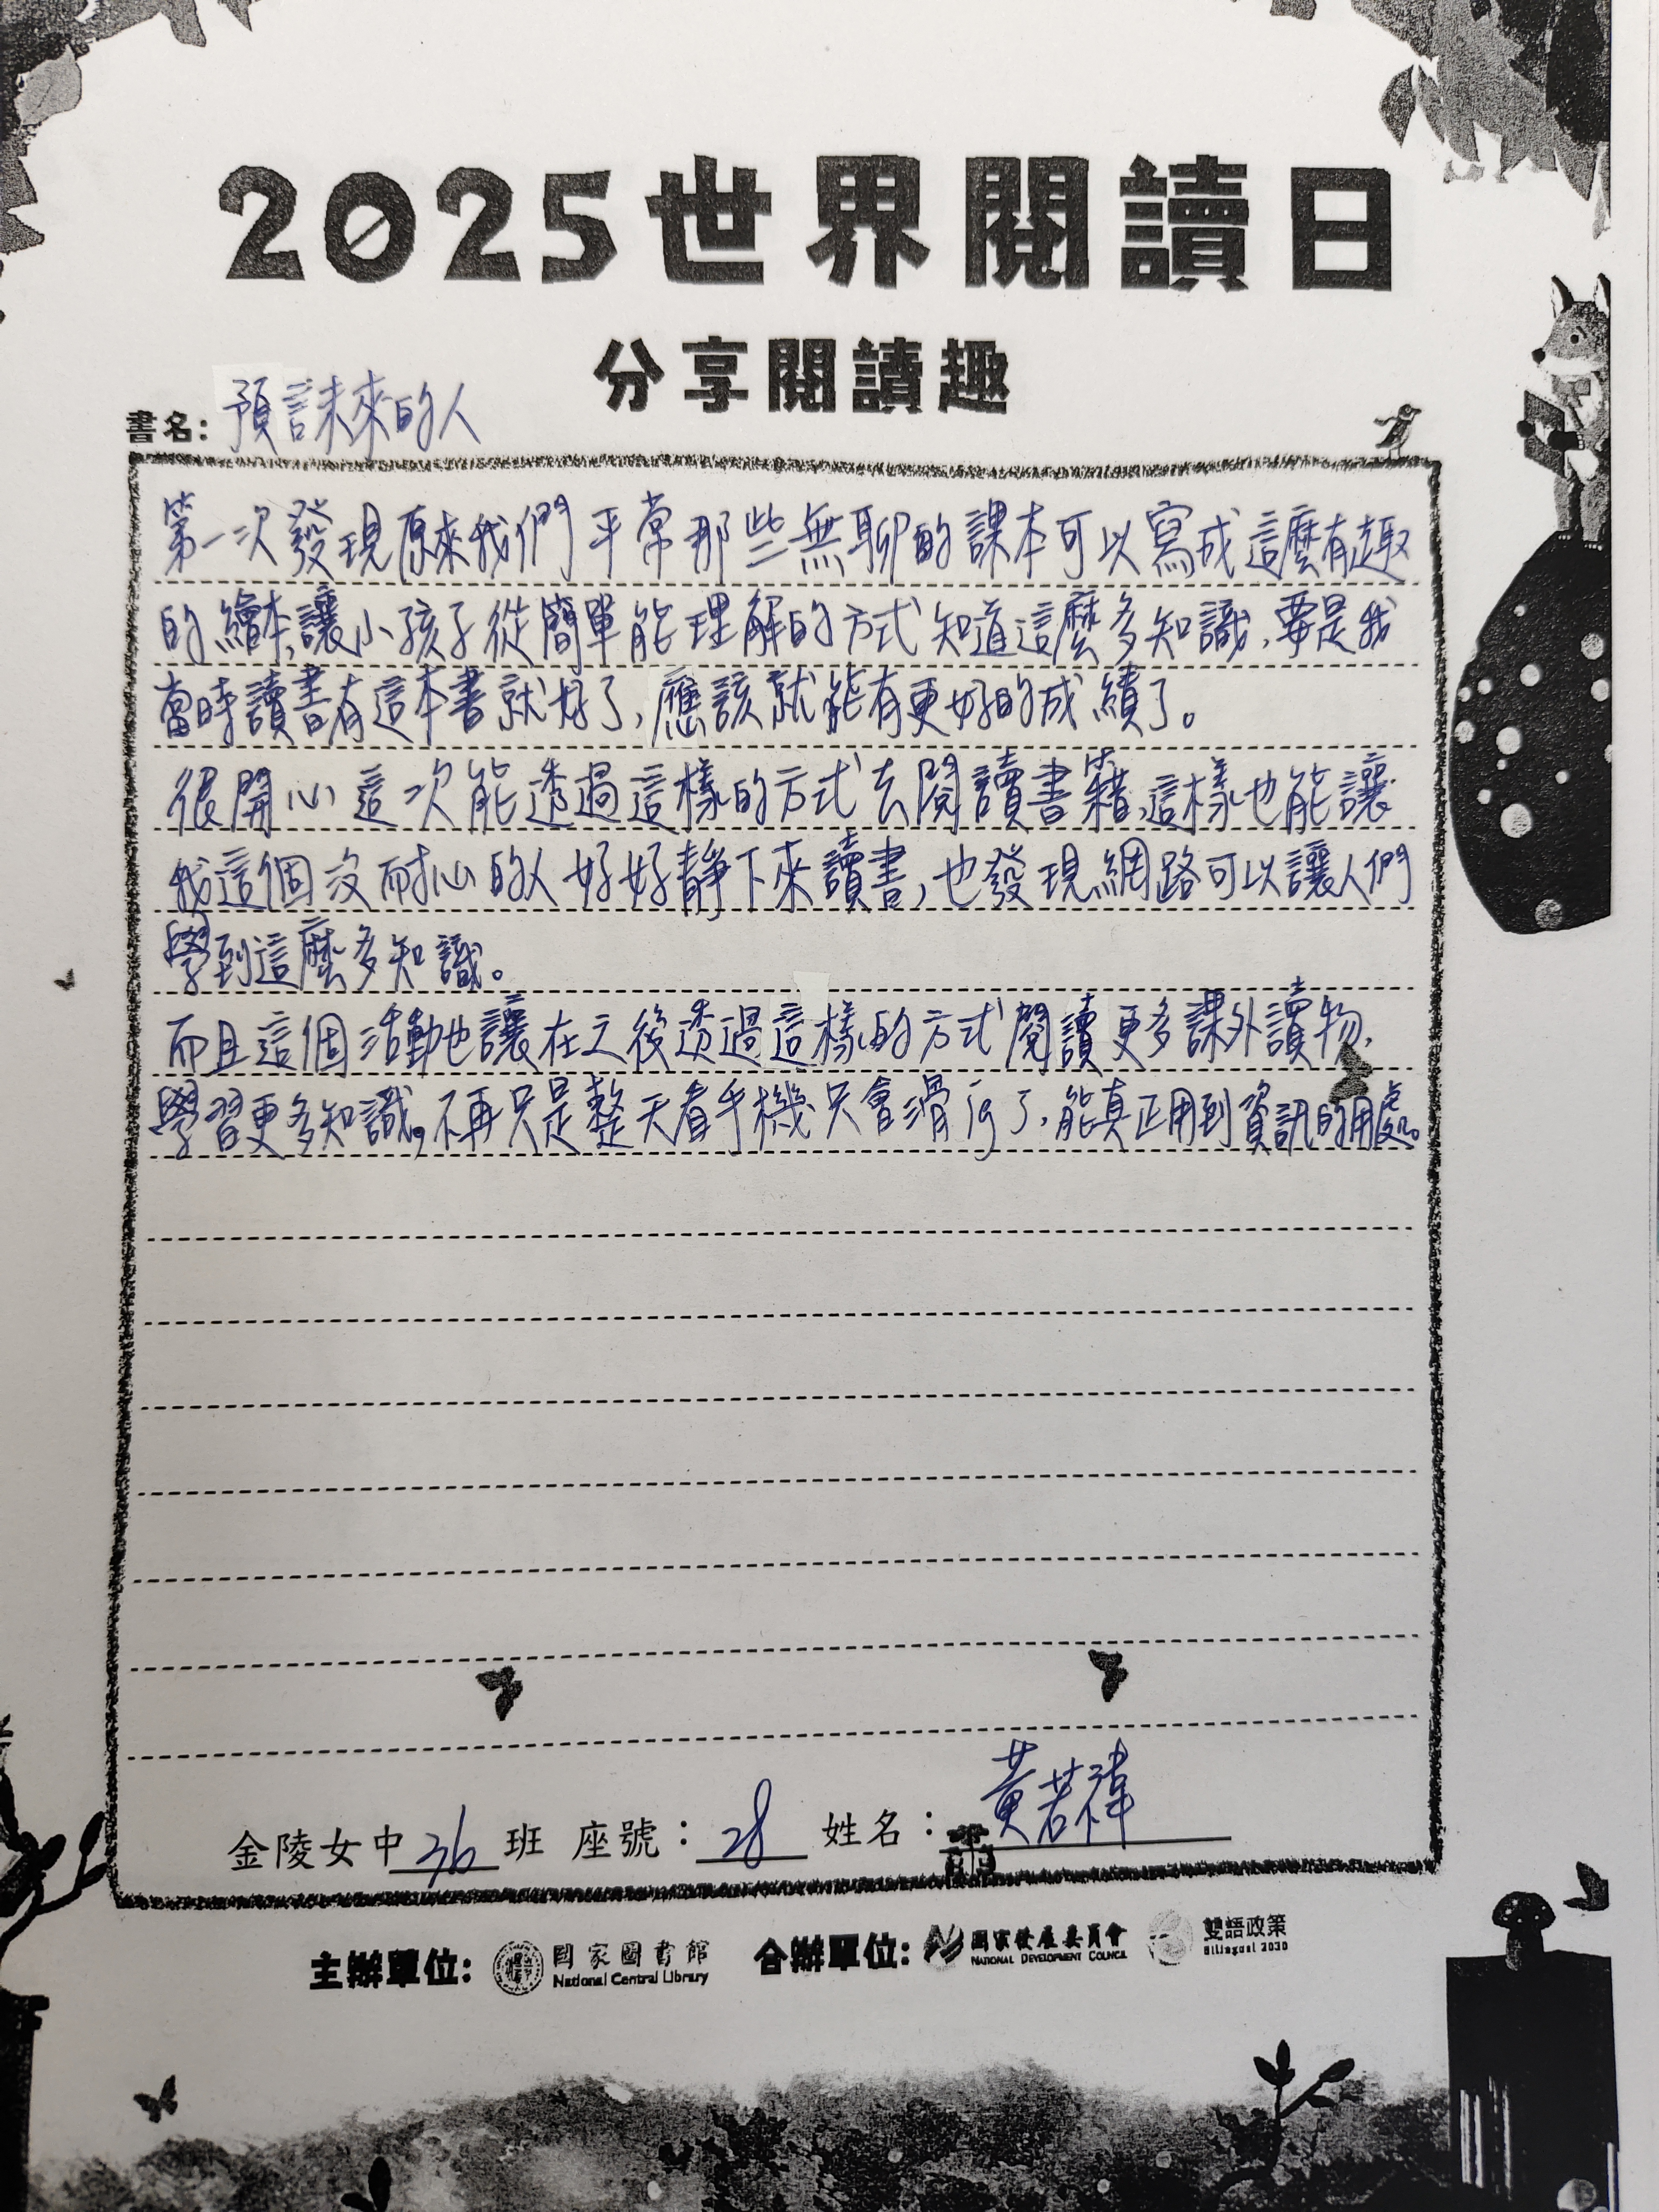 2025世界閱讀日
分享閱讀趣
書名：預言未來的人
第一次發現原來我們平常那些無聊的課本可以寫成這麼有趣
的繪本,讓小孩子從簡單能理解的方式知道這麼多知識,要是我
當時讀書有這本書就好了,應該就能有更好的成績了。
很開心這次能透過這樣的方式去閱讀書籍,這樣也能讓
我這個沒耐心的人好好靜下來讀書,也發現網路可以讓人們
學到這麼多知識。
而且這個活動也讓在之後透過這樣的方式閱讀更多課外讀物,
學習更多知識,不再只是整天看手機只會滑ig了,能真正用到資訊的用處。
金陵女中 36 班 座號：28 姓名：黃若禕
主辦單位: 國家圖書館 National Central Library 合辦單位: 國家發展委員會 NATIONAL DEVELOPMENT COUNCIL 雙語政策 Bilingual 2030